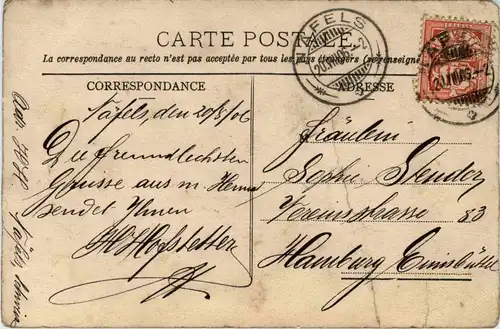 CARTE POSTALE
La correspondance au recto n'est pas acceptée par tous les pays étrangers (Se renseigner
CORRESPONDANCE
Näfels, den 20/8/06
Die freundlichsten
Grüsse aus m. Heimat
sendet Ihnen
H Hofstetter
Näfels, Schweiz
NÄFELS
20.VIII.06.-2
ADRESSE
Fräulein
Sophie Stendor
Vereinsstrasse 53
Hamburg Eimsbüttel